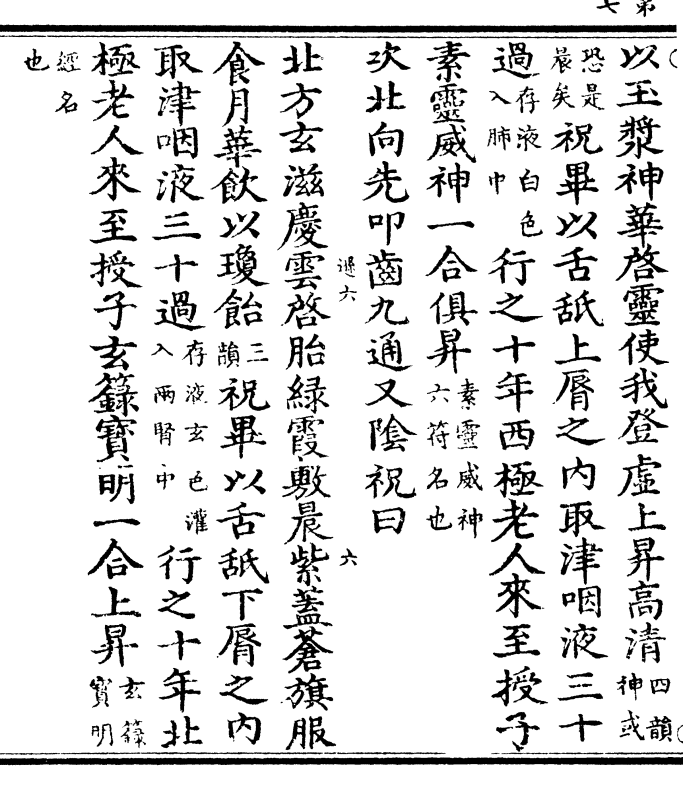 第七
以玉漿神華啓靈使我登虛上昇高清四韻神或
恐是晨矣祝畢以舌舐上脣之內取津咽液三十
過存液白色入肺中行之十年西極老人來至授子
素靈威神一合俱昇素靈威神六符名也
次北向先叩齒九通又陰祝曰
六 六
北方玄滋慶雲啓胎綠霞敷晨紫蓋蒼旗服
食月華飲以瓊飴三韻祝畢以舌舐下脣之內
取津咽液三十過存液玄色灌入兩腎中行之十年北
極老人來至授子玄籙寶明一合上昇玄籙寶明
經名也